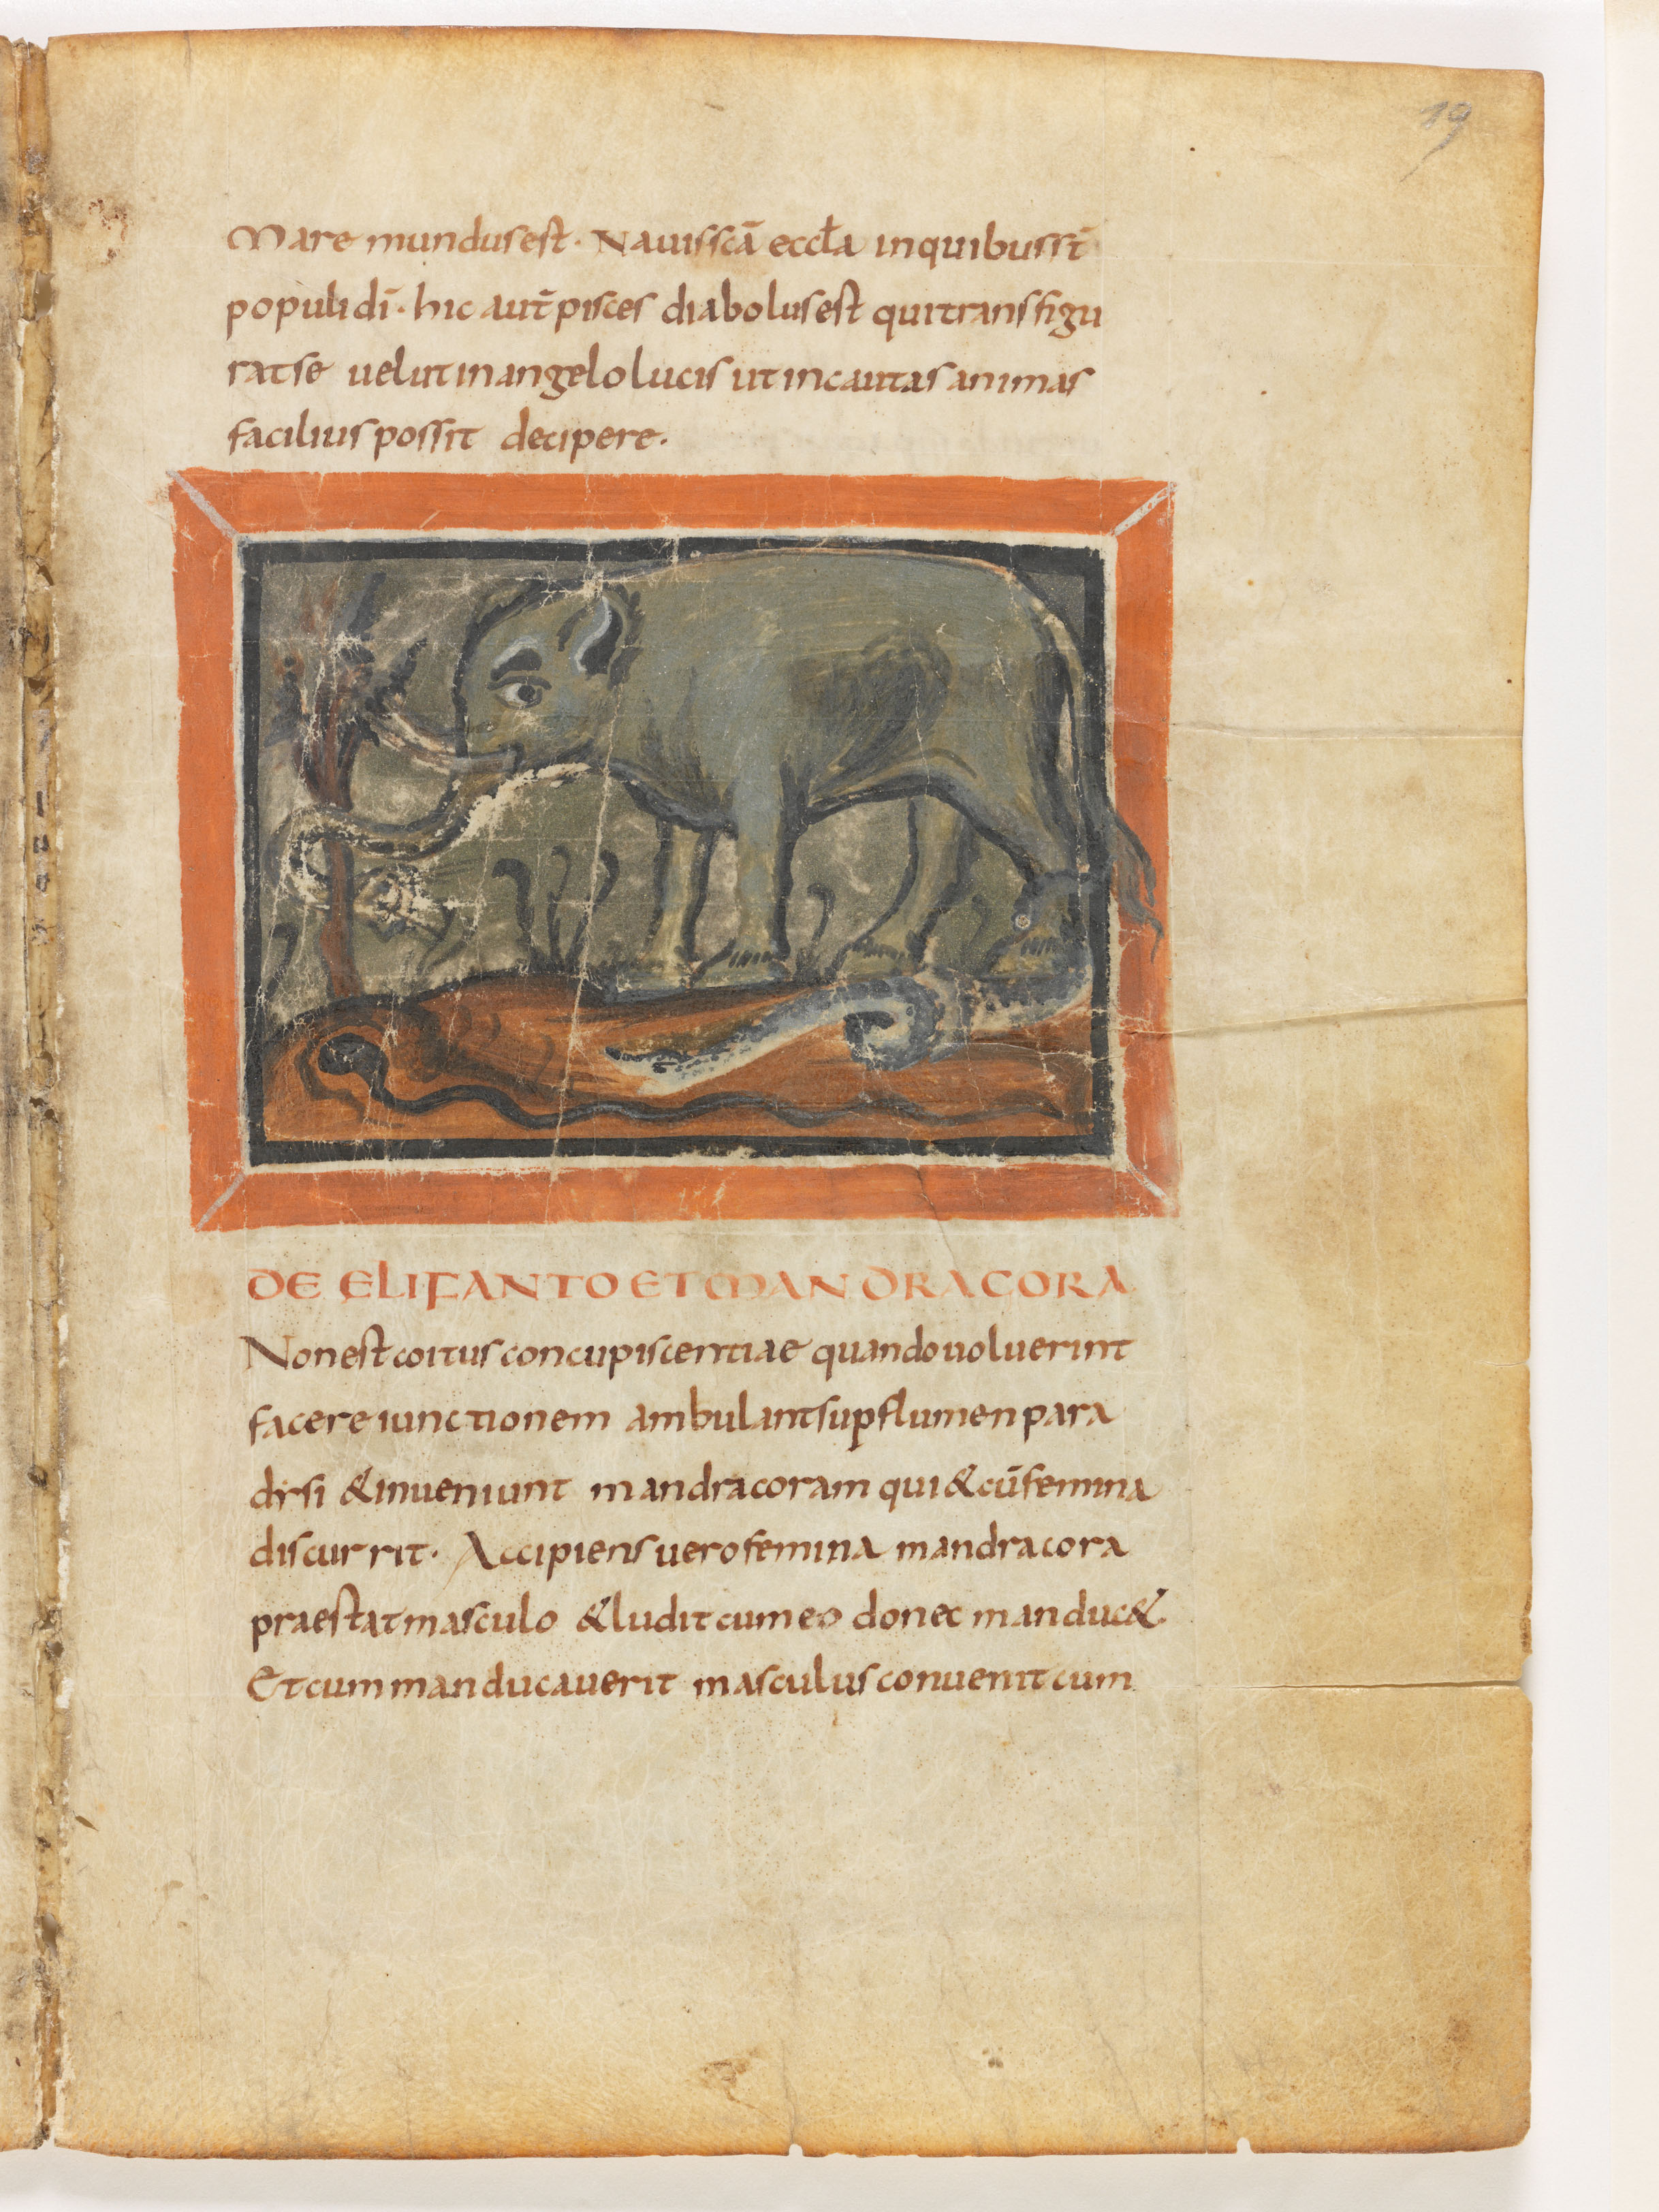 19
Mare mundus est · Nauis scā eccła in quibus st̄
populi dī · hic aut̄ pisces diabolus est qui transfigu
rat se uelut in angelo lucis ut incautas animas
facilius possit decipere ·
DE ELIFANTO ET MANDRACORA
Non est coitus concupiscentiae quando uoluerint
facere iunctionem ambulant sup flumen para
dysi & inueniunt mandracoram qui & cū femina
discurrit · Accipiens uero femina mandracora
praestat masculo & ludit cum eo donec manduc&
Et cum manducauerit masculus conuenit cum